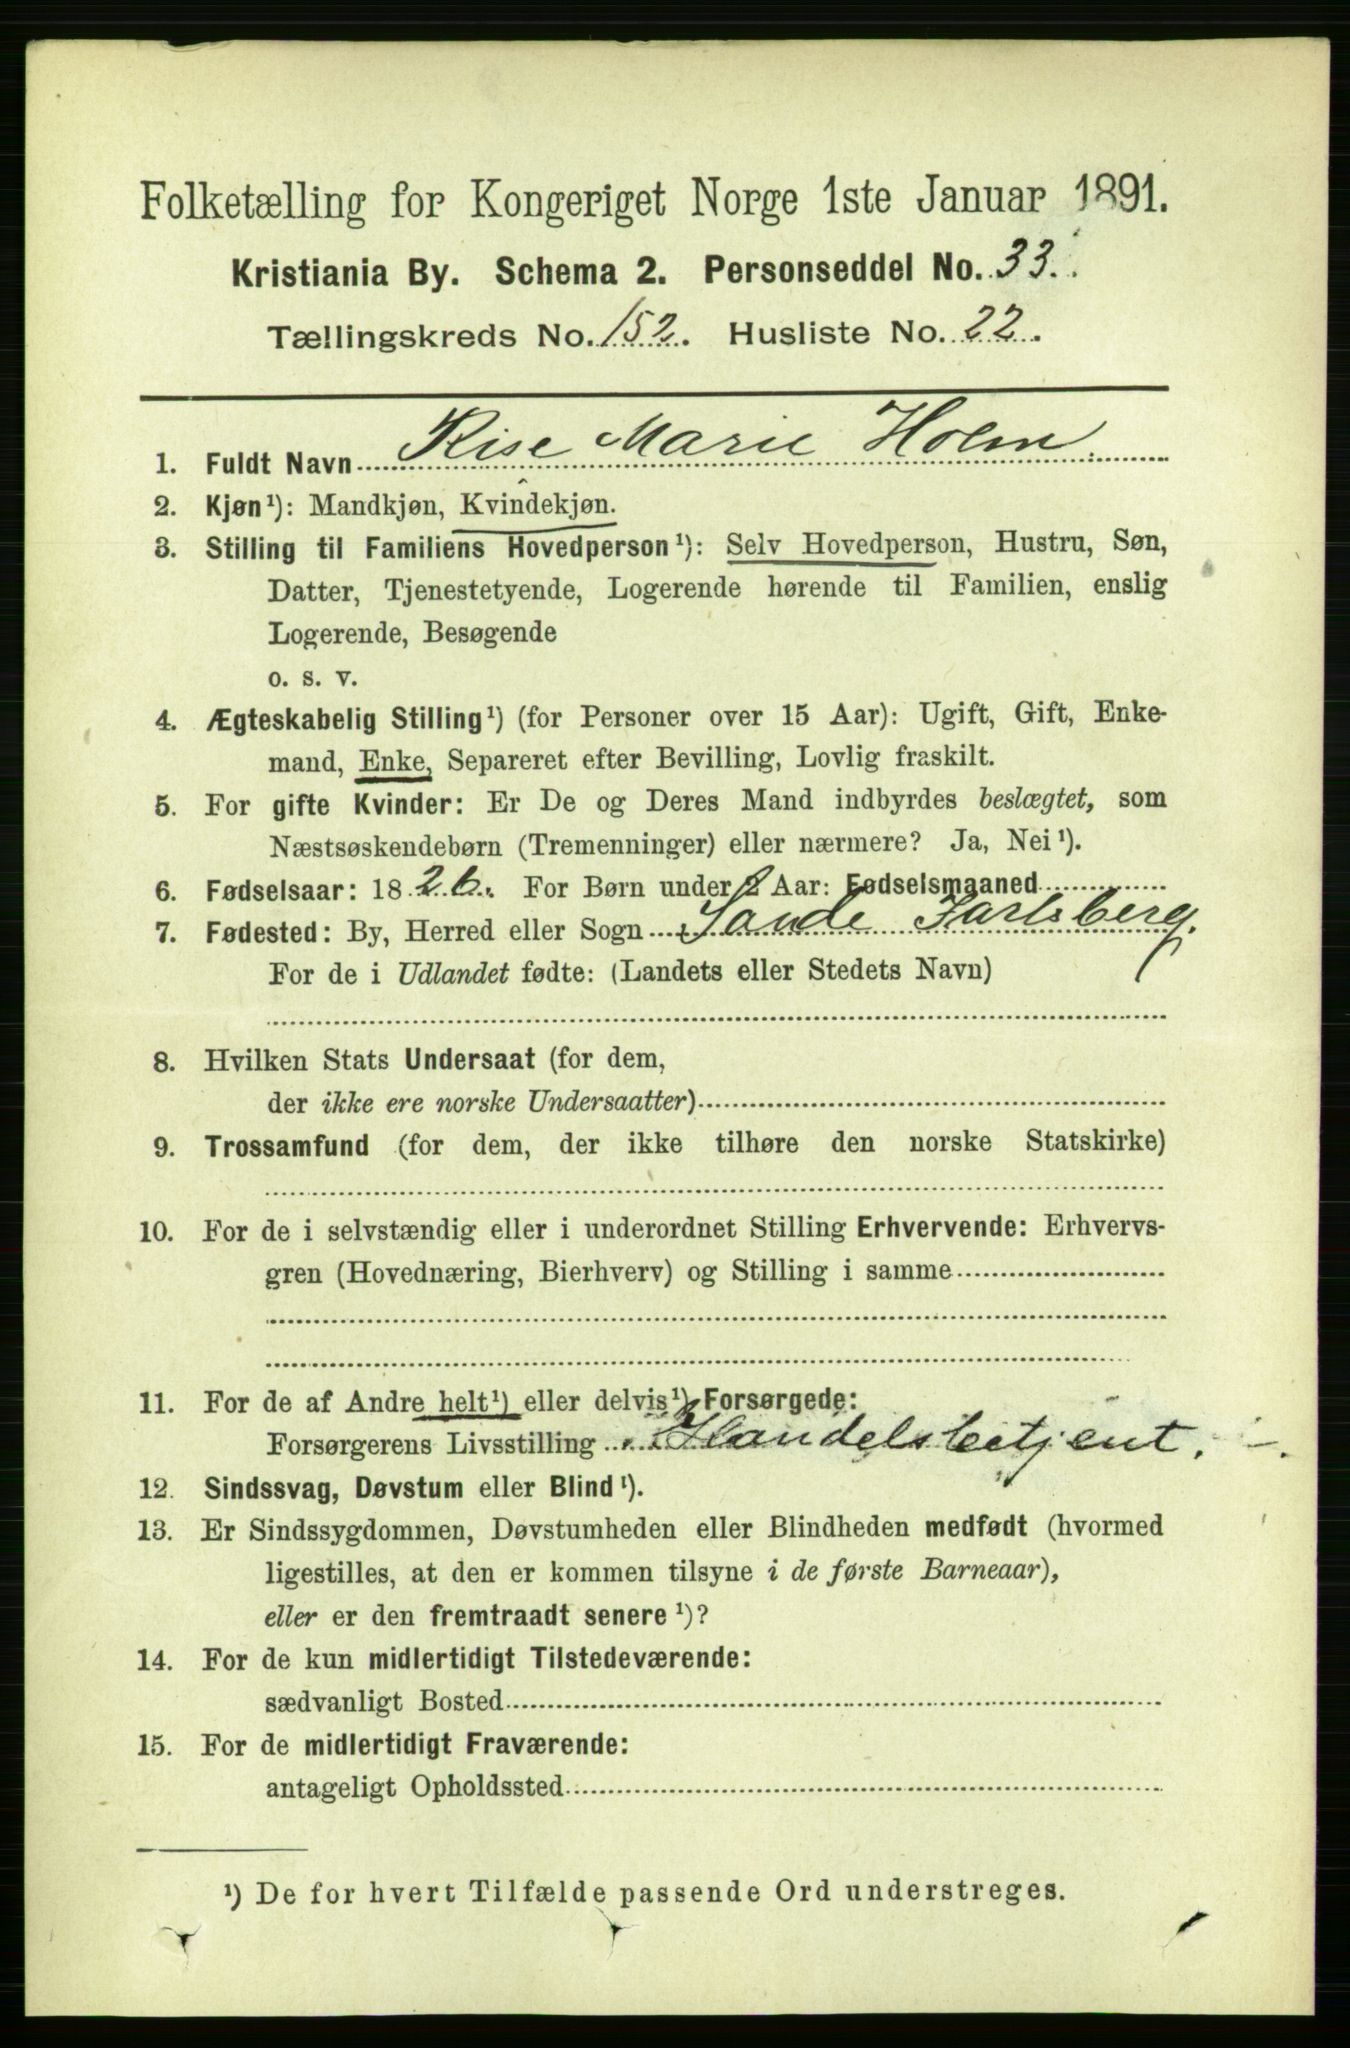 Folketælling for Kongeriget Norge 1ste Januar 1891.
Kristiania By. Schema 2. Personseddel No. 33.
Tællingskreds No. 152. Husliste No. 22.
1. Fuldt Navn Rise Marie Holm
2. Kjøn¹): Mandkjøn, Kvindekjøn.
3. Stilling til Familiens Hovedperson¹): Selv Hovedperson, Hustru, Søn,
Datter, Tjenestetyende, Logerende hørende til Familien, enslig
Logerende, Besøgende
o. s. v.
4. Ægteskabelig Stilling¹) (for Personer over 15 Aar): Ugift, Gift, Enke-
mand, Enke, Separeret efter Bevilling, Lovlig fraskilt.
5. For gifte Kvinder: Er De og Deres Mand indbyrdes beslægtet, som
Næstsøskendebørn (Tremenninger) eller nærmere? Ja, Nei¹).
6. Fødselsaar: 1826. For Børn under 2 Aar: Fødselsmaaned
7. Fødested: By, Herred eller Sogn Sande Jarlsberg.
For de i Udlandet fødte: (Landets eller Stedets Navn)
8. Hvilken Stats Undersaat (for dem,
der ikke ere norske Undersaatter)
9. Trossamfund (for dem, der ikke tilhøre den norske Statskirke)
10. For de i selvstændig eller i underordnet Stilling Erhvervende: Erhvervs-
gren (Hovednæring, Bierhverv) og Stilling i samme
11. For de af Andre helt¹) eller delvis¹) Forsørgede:
Forsørgerens Livsstilling Handelsbetjent.
12. Sindssvag, Døvstum eller Blind¹).
13. Er Sindssygdommen, Døvstumheden eller Blindheden medfødt (hvormed
ligestilles, at den er kommen tilsyne i de første Barneaar),
eller er den fremtraadt senere¹)?
14. For de kun midlertidigt Tilstedeværende:
sædvanligt Bosted
15. For de midlertidigt Fraværende:
antageligt Opholdssted
¹) De for hvert Tilfælde passende Ord understreges.